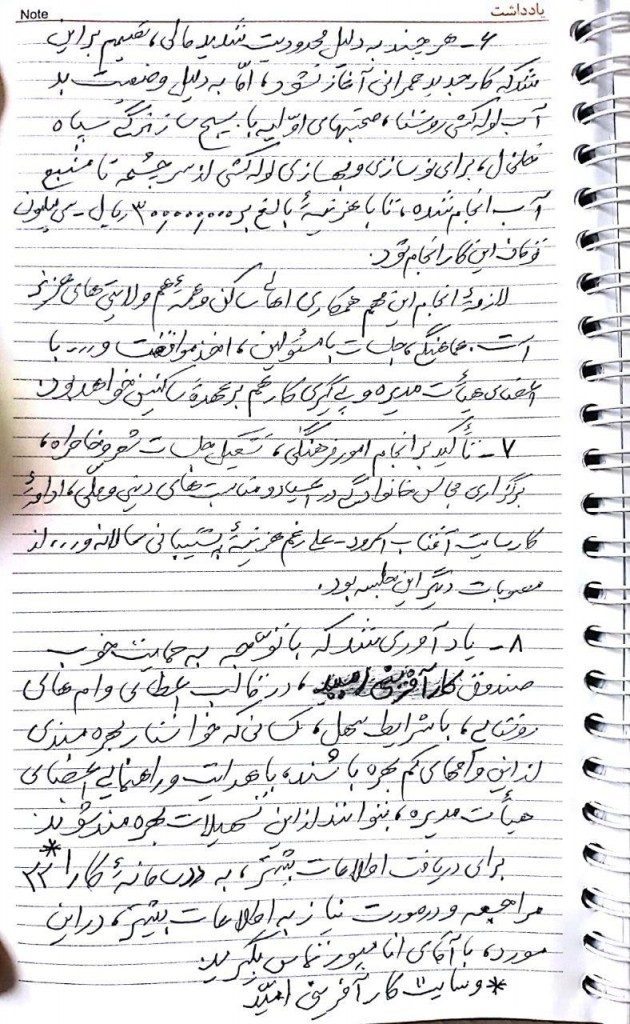 یادداشت Note
۶- هر چند به دلیل محدودیت شدید مالی، تصمیم بر این
شد که کار جدید عمرانی آغاز نشود، امّا به دلیل وضعیت بد
آب لوله کشی روستا، صحبتهای اوّلیه با بسیج سازندگی سپاه
برای نوسازی و بهسازی لوله کشی از سرچشمه تا منبع
آب انجام شده، تا با هزینهٔ بالغ بر ۳۰۰٫۰۰۰٫۰۰۰ ریال - سی میلیون
تومان این کار انجام شود.
لازمهٔ انجام این مهم همکاری اهالی ساکن و همهٔ هم ولایتی های عزیز
است. هماهنگی، جلسات با مسئولین، اخذ موافقت و ... با
اعضای هیأت مدیره و پی گیری کار هم بر عهدهٔ ساکنین خواهد بود.
۷- تأکید بر انجام امور فرهنگی، تشکیل جلسات شعر و خاطره،
برگزاری مجالس خانوادگی در اعیاد و مناسبت های دینی و ملّی، ادامهٔ
کار سایت آفتاب اسکرود - علی رغم هزینهٔ پشتیبانی سالانه و ... از
مصوبات دیگر این جلسه بود.
۸- یادآوری شد که با توجه به حمایت خوب
صندوق کارآفرینی امید، در قالب اعطای وام های
روستایی، با شرایط سهل، کسانی که خواستار بهره مندی
از این وامهای کم بهره باشند، با هدایت و راهنمایی اعضای
هیأت مدیره، بتوانند از این تسهیلات بهره مند شوند
برای دریافت اطلاعات بیشتر، به رسانهٔ کارا ۲۳*
مراجعه و در صورت نیاز به اطلاعات بیشتر، در این
مورد، با آقای تماس بگیرید.
* وسایت کارآفرینی امید